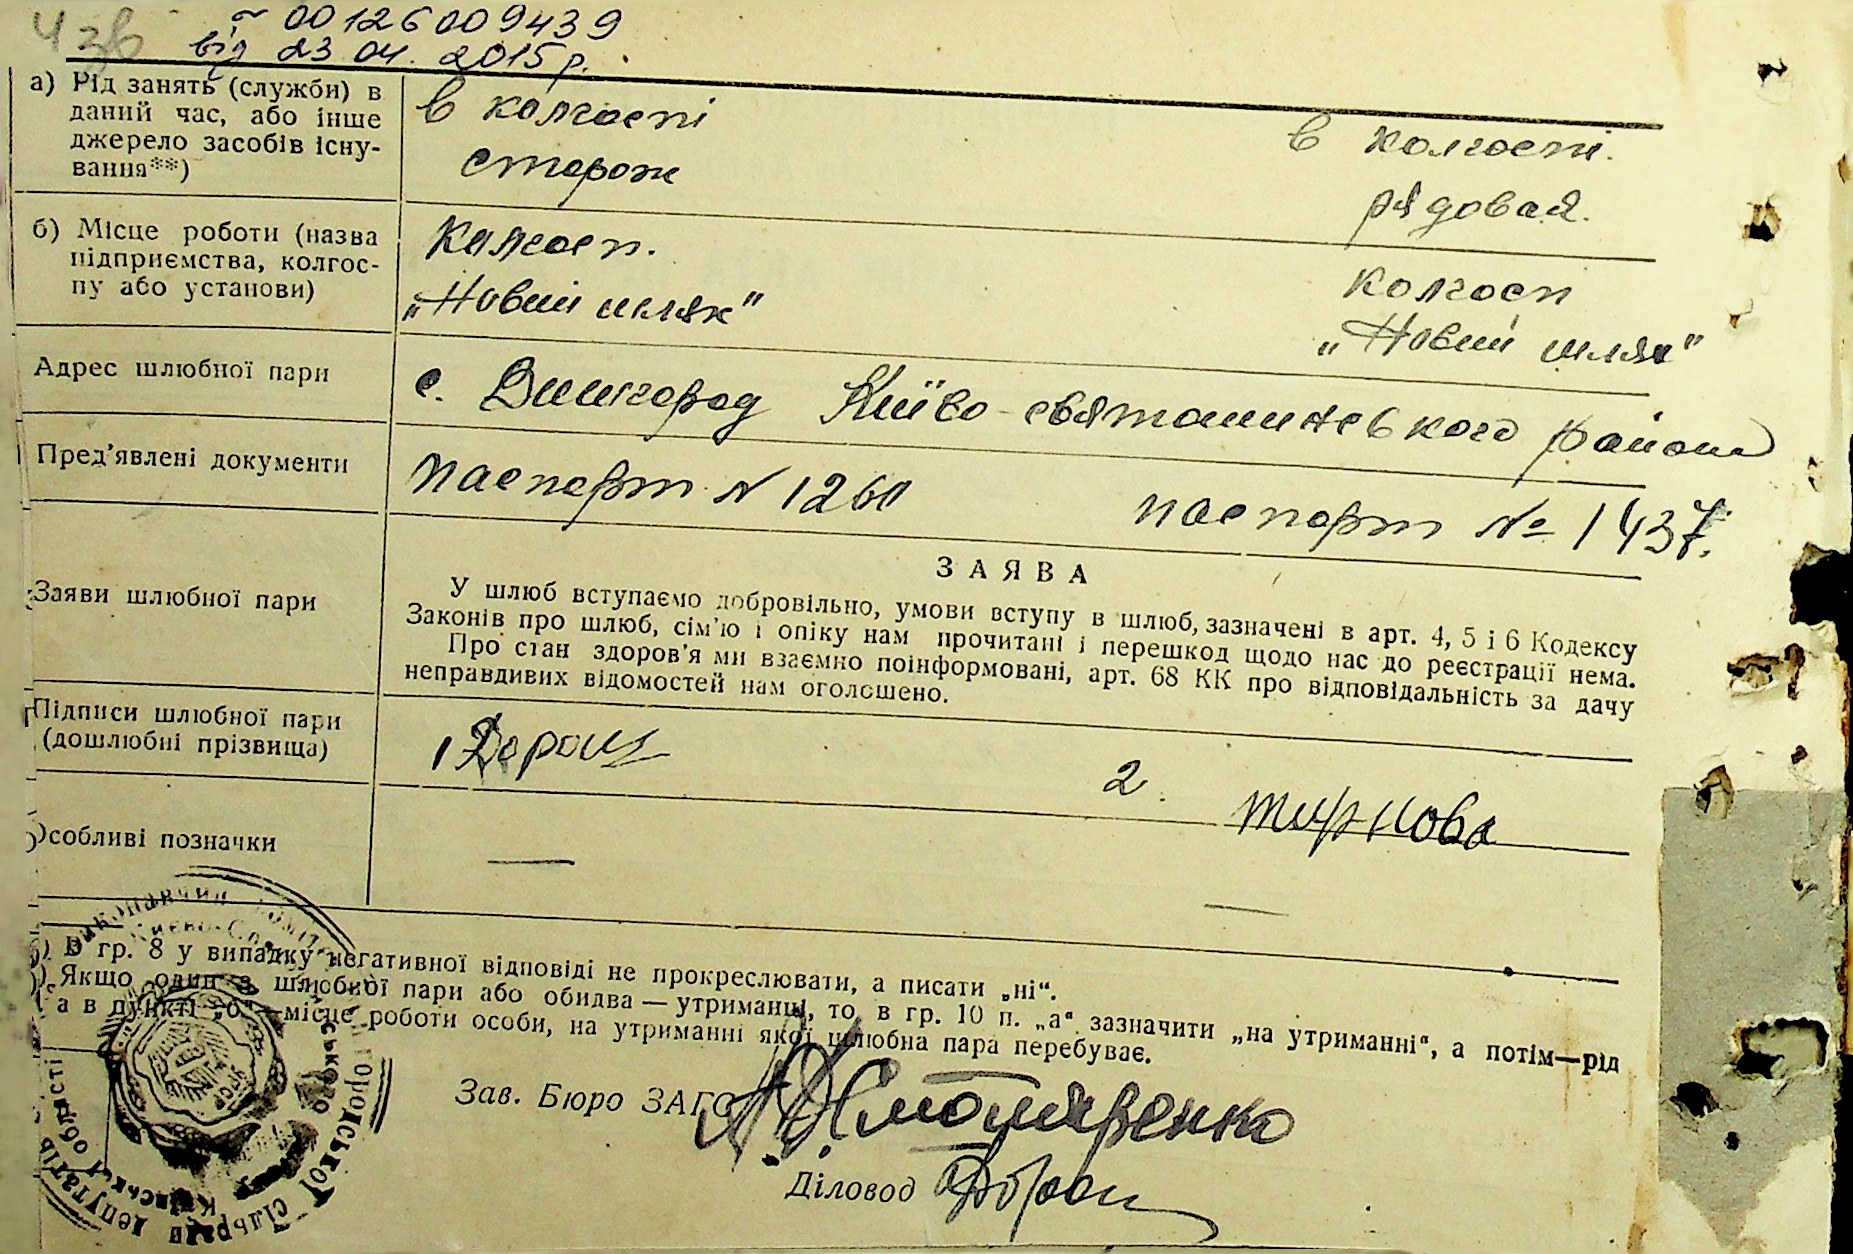 00126009439
від 23.04.2015р.
а) Рід занять (служби) в
даний час, або інше
джерело засобів існу-
вання**)
в колгоспі
сторож
в колгоспі.
рядовая.
б) Місце роботи (назва
підприємства, колгос-
пу або установи)
Колгосп.
„Новий шлях"
колгосп
„Новий шлях"
Адрес шлюбної пари
с. Вишгород Київо-святошинського района
Пред'явлені документи
паспорт N 1260
паспорт № 1437.
Заяви шлюбної пари
ЗАЯВА
У шлюб вступаємо добровільно, умови вступу в шлюб, зазначені в арт. 4, 5 і 6 Кодексу
Законів про шлюб, сім'ю і опіку нам прочитані і перешкод щодо нас до реєстрації нема.
Про стан здоров'я ми взаємно поінформовані, арт. 68 КК про відповідальність за дачу
неправдивих відомостей нам оголошено.
Підписи шлюбної пари
(дошлюбні прізвища)
1
2.
Особливі позначки
—
—
В гр. 8 у випадку негативної відповіді не прокреслювати, а писати „ні".
Якщо один з шлюбної пари або обидва — утриманці, то в гр. 10 п. „а" зазначити „на утриманні", а потім—рід
а в пункті „б"—місце роботи особи, на утриманні якої шлюбна пара перебуває.
Зав. Бюро ЗАГС
Діловод